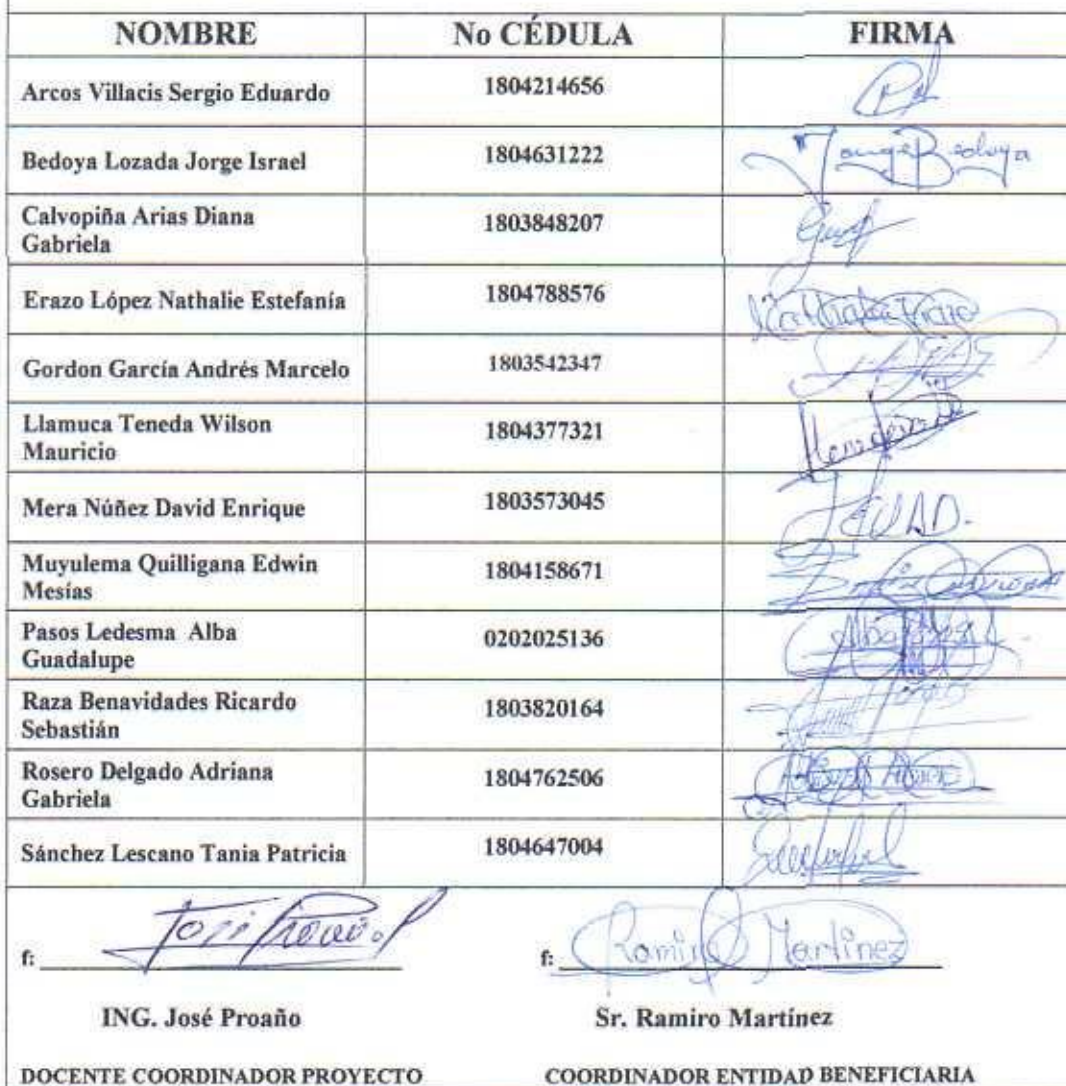 NOMBRE No CÉDULA FIRMA
Arcos Villacis Sergio Eduardo 1804214656
Bedoya Lozada Jorge Israel 1804631222 Jorge Bedoya
Calvopiña Arias Diana
Gabriela 1803848207
Erazo López Nathalie Estefanía 1804788576
Gordon García Andrés Marcelo 1803542347
Llamuca Teneda Wilson
Mauricio 1804377321
Mera Núñez David Enrique 1803573045
Muyulema Quilligana Edwin
Mesías 1804158671
Pasos Ledesma Alba
Guadalupe 0202025136
Raza Benavidades Ricardo
Sebastián 1803820164
Rosero Delgado Adriana
Gabriela 1804762506
Sánchez Lescano Tania Patricia 1804647004
f: f: Ramiro Martínez
ING. José Proaño Sr. Ramiro Martínez
DOCENTE COORDINADOR PROYECTO COORDINADOR ENTIDAD BENEFICIARIA